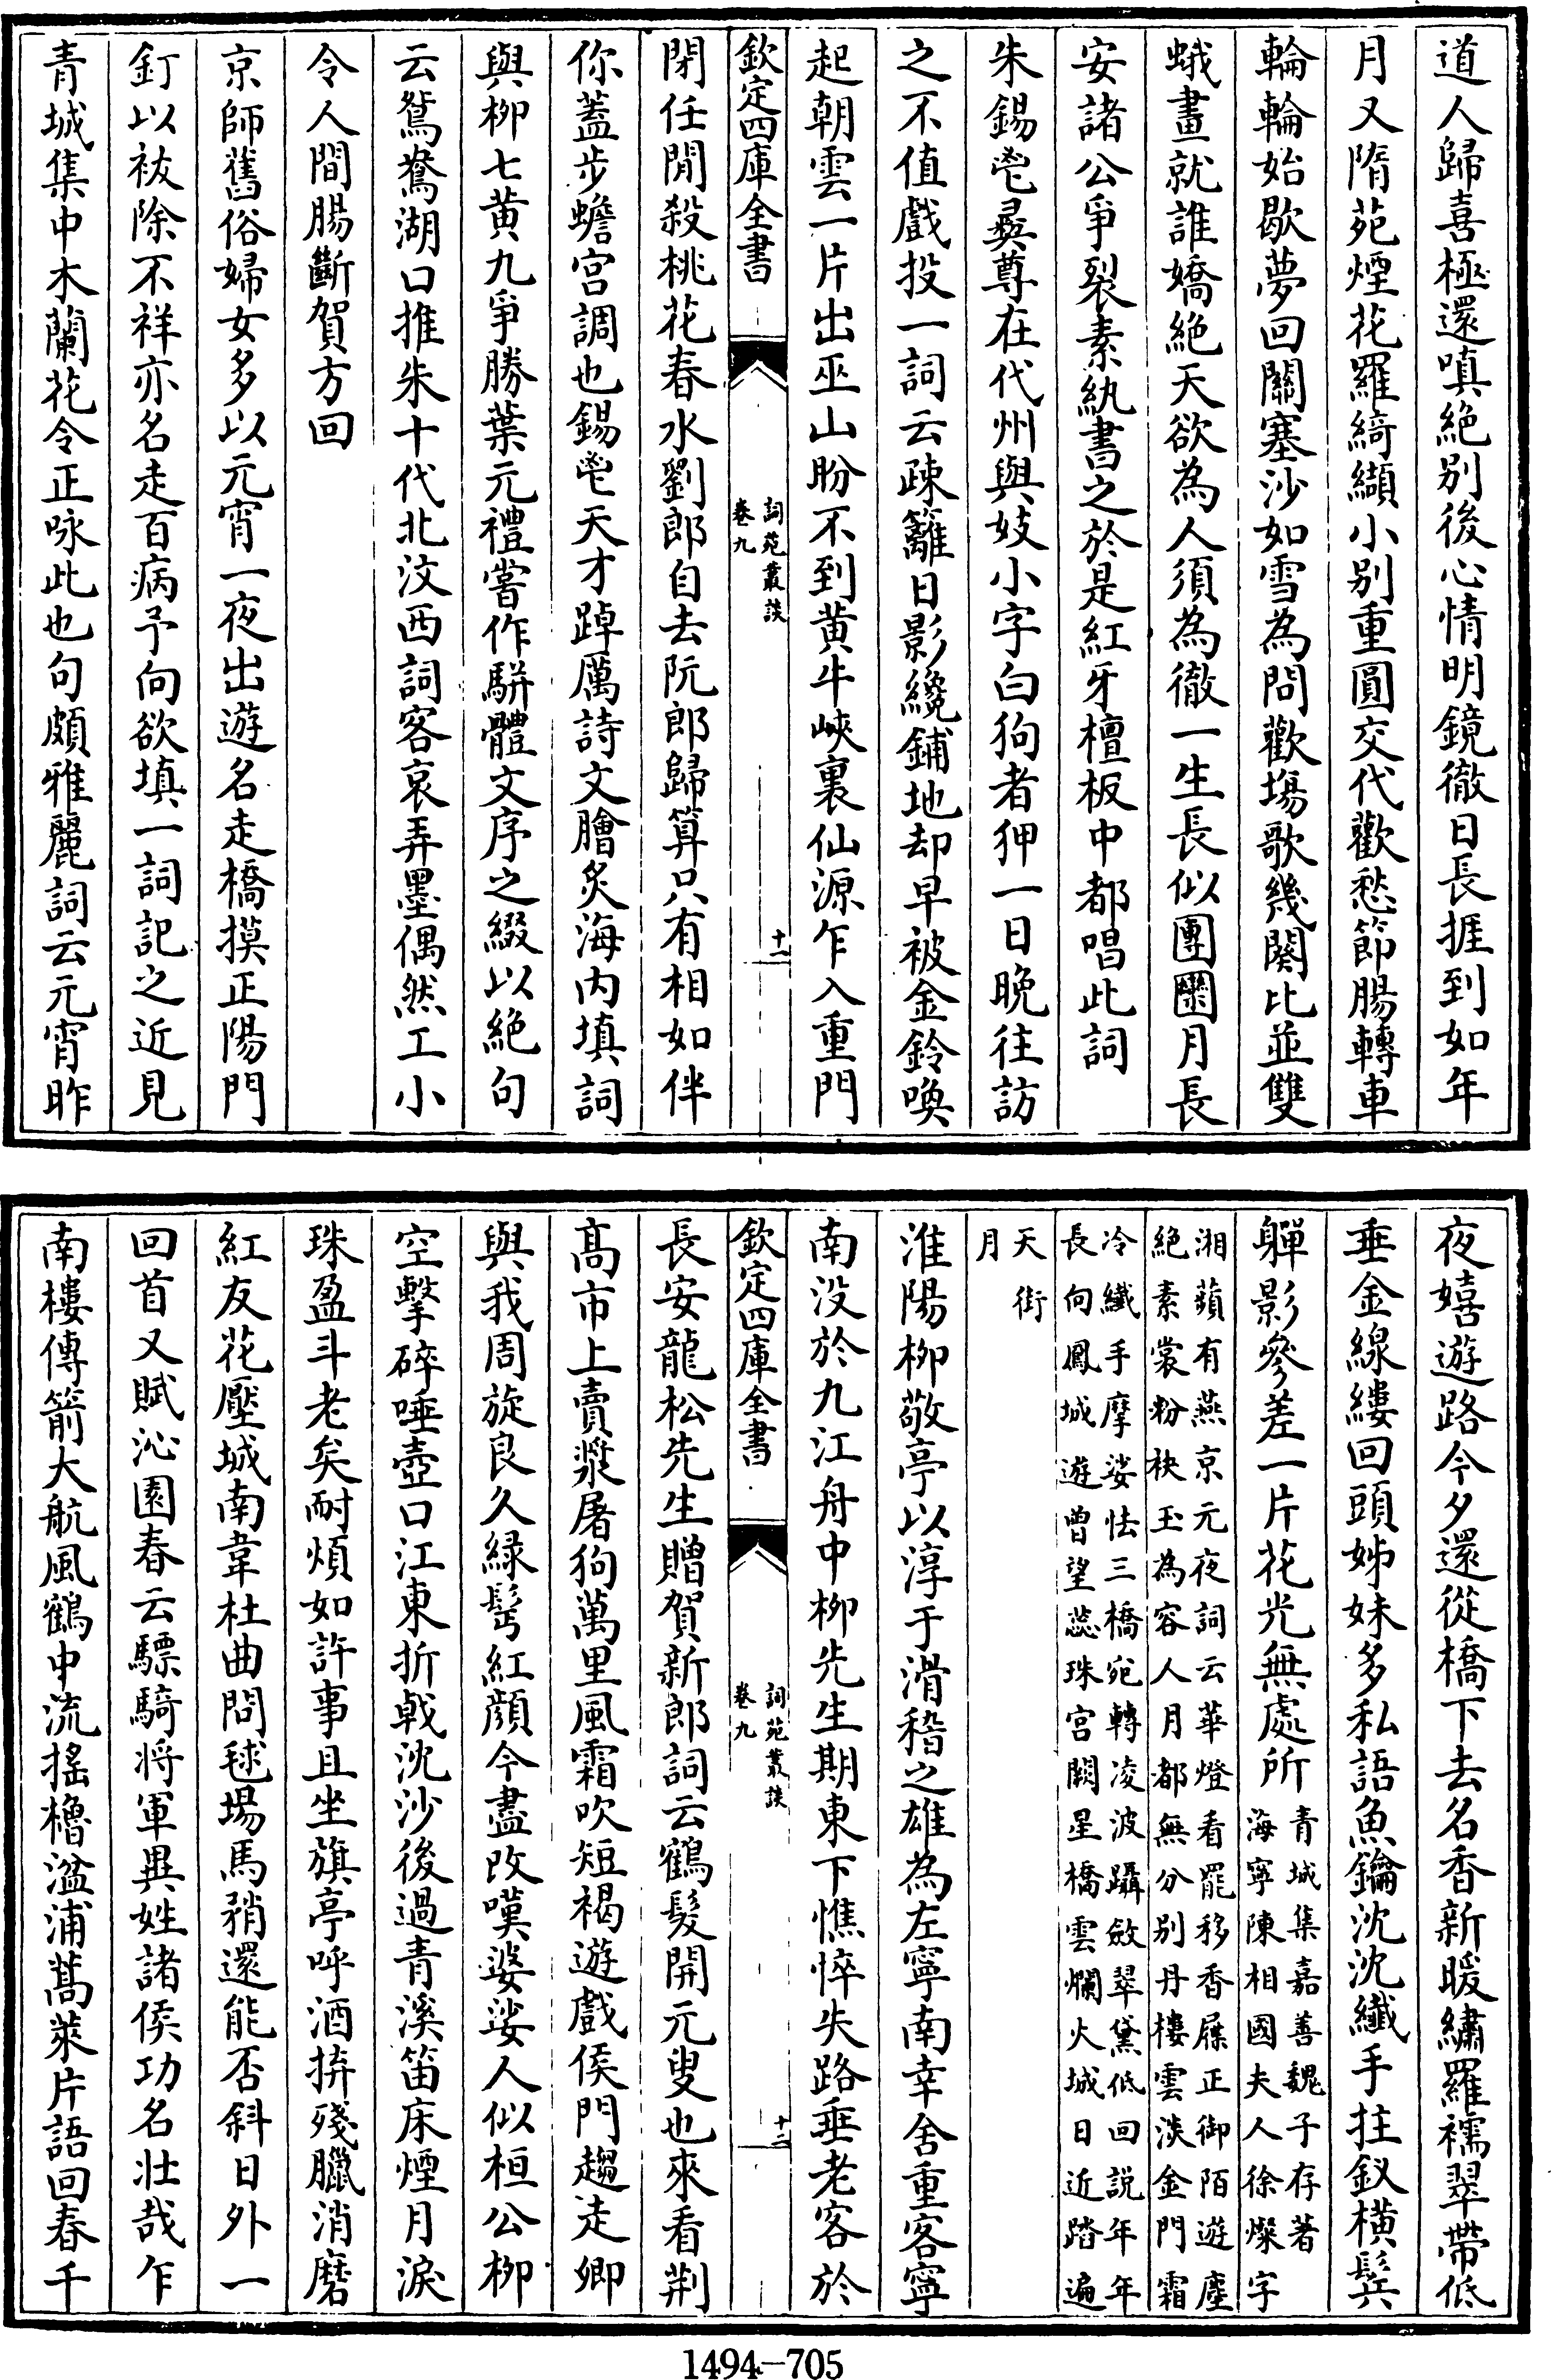 道人歸喜極還嗔絶别後心情明鏡徹日長捱到如年
月又隋苑煙花羅綺纈小别重圓交代歡愁節腸轉車
輪輪始歇夢回關塞沙如雪為問歡塲歌幾闋比並雙
蛾畫就誰嬌絶天欲為人須為徹一生長似團圞月長
安諸公爭裂素紈書之於是紅牙檀板中都唱此詞
朱錫鬯彞尊在代州與妓小字白狗者狎一日晚往訪
之不值戲投一詞云疎籬日影纔鋪地却早被金鈴喚
起朝雲一片出巫山盼不到黄牛峽裏仙源乍入重門
欽定四庫全書
詞苑叢談
卷九
十一
閉任閒殺桃花春水劉郎自去阮郎歸算只有相如伴
你蓋步蟾宮調也錫鬯天才踔厲詩文膾炙海内填詞
與柳七黄九爭勝葉元禮嘗作駢體文序之綴以絶句
云鴛鴦湖口推朱十代北汶西詞客哀弄墨偶然工小
令人間腸斷賀方回
京師舊俗婦女多以元宵一夜出遊名走橋摸正陽門
釘以祓除不祥亦名走百病予向欲填一詞記之近見
青城集中木蘭花令正咏此也句頗雅麗詞云元宵昨
夜嬉遊路今夕還從橋下去名香新暖繡羅襦翠帶低
垂金線縷回頭姊妹多私語魚鑰沈沈纖手拄釵橫鬂
軃影參差一片花光無處所
青城集嘉善魏子存著
海寧陳相國夫人徐燦字
湘蘋有燕京元夜詞云華燈看罷移香屧正御陌遊塵
絶素裳粉袂玉為容人月都無分别丹樓雲淡金門霜
冷纖手摩娑怯三橋宛轉凌波躡斂翠黛低回説年年
長向鳳城遊曾望蕊珠宮闕星橋雲爛火城日近踏遍
天街
月
淮陽柳敬亭以淳于滑稽之雄為左寧南幸舍重客寧
南没於九江舟中柳先生期東下憔悴失路垂老客於
欽定四庫全書
詞苑叢談
卷九
十二
長安龍松先生贈賀新郎詞云鶴髮開元叟也來看荆
髙市上賣漿屠狗萬里風霜吹短褐遊戲侯門趨走卿
與我周旋良久緑髩紅顔今盡改嘆婆娑人似桓公柳
空擊碎唾壺口江東折戟沈沙後過青溪笛床煙月淚
珠盈斗老矣耐煩如許事且坐旗亭呼酒拚殘臘消磨
紅友花壓城南韋杜曲問毬場馬矟還能否斜日外一
回首又賦沁園春云驃騎將軍異姓諸侯功名壯哉乍
南樓傳箭大航風鶴中流搖櫓湓浦蒿萊片語回春千
1494-705